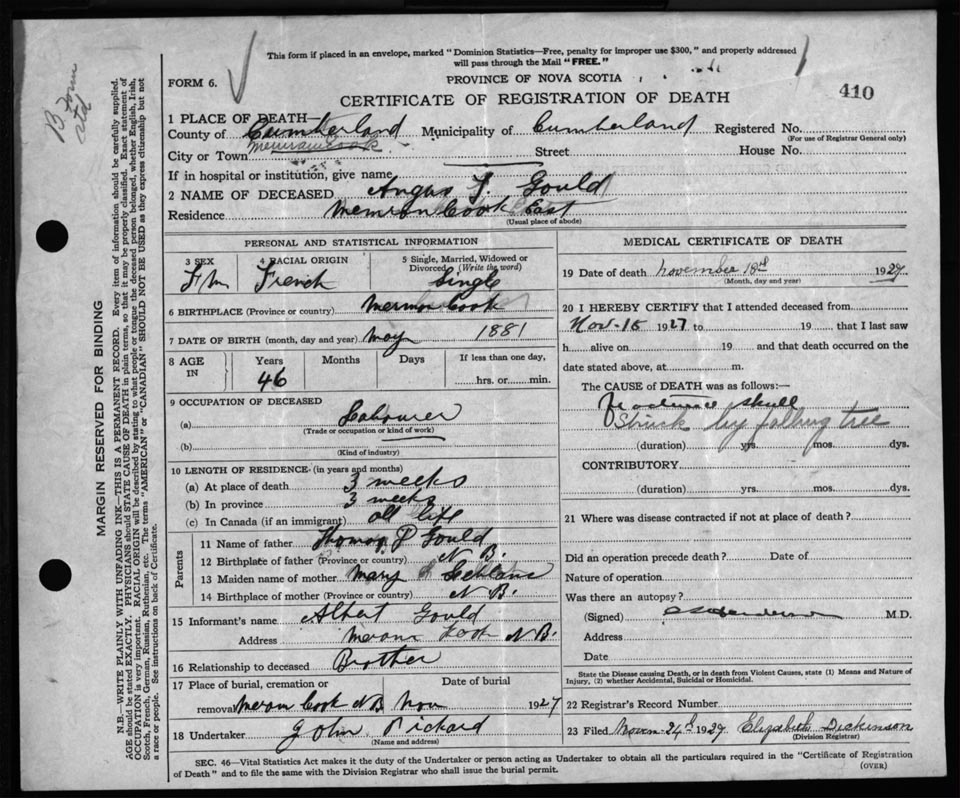 This form if placed in an envelope, marked "Dominion Statistics—Free, penalty for improper use $300," and properly addressed
will pass through the Mail "FREE."
FORM 6.
PROVINCE OF NOVA SCOTIA
CERTIFICATE OF REGISTRATION OF DEATH
410
1 PLACE OF DEATH—
County of Cumberland Municipality of Cumberland Registered No.
(For use of Registrar General only)
City or Town Memramcook Street House No.
If in hospital or institution, give name
2 NAME OF DECEASED Angus J. Gould
Residence Memron Cook East
(Usual place of abode)
PERSONAL AND STATISTICAL INFORMATION
3 SEX
4 RACIAL ORIGIN French
5 Single, Married, Widowed or Divorced (Write the word) Single
6 BIRTHPLACE (Province or country) Memron Cook
7 DATE OF BIRTH (month, day and year) may 1881
8 AGE IN Years 46 Months Days If less than one day, hrs. or min.
9 OCCUPATION OF DECEASED
(a) Labourer
(Trade or occupation or kind of work)
(b)
(Kind of industry)
10 LENGTH OF RESIDENCE (in years and months)
(a) At place of death 3 weeks
(b) In province 3 weeks
(c) In Canada (if an immigrant) all life
Parents
11 Name of father Thomas P Gould
12 Birthplace of father (Province or country) N B.
13 Maiden name of mother Mary
14 Birthplace of mother (Province or country) N B.
15 Informant's name Albert Gould
Address Meram Kook N B.
16 Relationship to deceased Brother
17 Place of burial, cremation or removal Meram Cook N B Date of burial Nov 1927
18 Undertaker John Richard
(Name and address)
MEDICAL CERTIFICATE OF DEATH
19 Date of death November 18th 1927
(Month, day and year)
20 I HEREBY CERTIFY that I attended deceased from
Nov-18 1927 to 19 that I last saw
h alive on 19 and that death occurred on the
date stated above, at m.
The CAUSE of DEATH was as follows:—
fracture skull
Struck by falling tree
(duration) yrs. mos. dys.
CONTRIBUTORY
(duration) yrs. mos. dys.
21 Where was disease contracted if not at place of death?
Did an operation precede death? Date of
Nature of operation
Was there an autopsy?
(Signed) M.D.
Address
Date
State the Disease causing Death, or in death from Violent Causes, state (1) Means and Nature of
Injury, (2) whether Accidental, Suicidal or Homicidal.
22 Registrar's Record Number
23 Filed Novem 24th 1927 Elizabeth Dickinson
(Division Registrar)
SEC. 46—Vital Statistics Act makes it the duty of the Undertaker or person acting as Undertaker to obtain all the particulars required in the "Certificate of Registration
of Death" and to file the same with the Division Registrar who shall issue the burial permit.
(OVER)
MARGIN RESERVED FOR BINDING
N.B.—WRITE PLAINLY WITH UNFADING INK—THIS IS A PERMANENT RECORD. Every item of information should be carefully supplied.
AGE should be stated EXACTLY. PHYSICIANS should STATE CAUSE OF DEATH in plain terms, so that it may be properly classified. Exact statement of
OCCUPATION is very important. RACIAL ORIGIN will be described by stating to what people or tongue the deceased person belonged, whether English, Irish,
Scotch, French, German, Russian, Ruthenian, etc. The terms "AMERICAN" or "CANADIAN" SHOULD NOT BE USED as they express citizenship but not
a race or people. See instructions on back of Certificate.